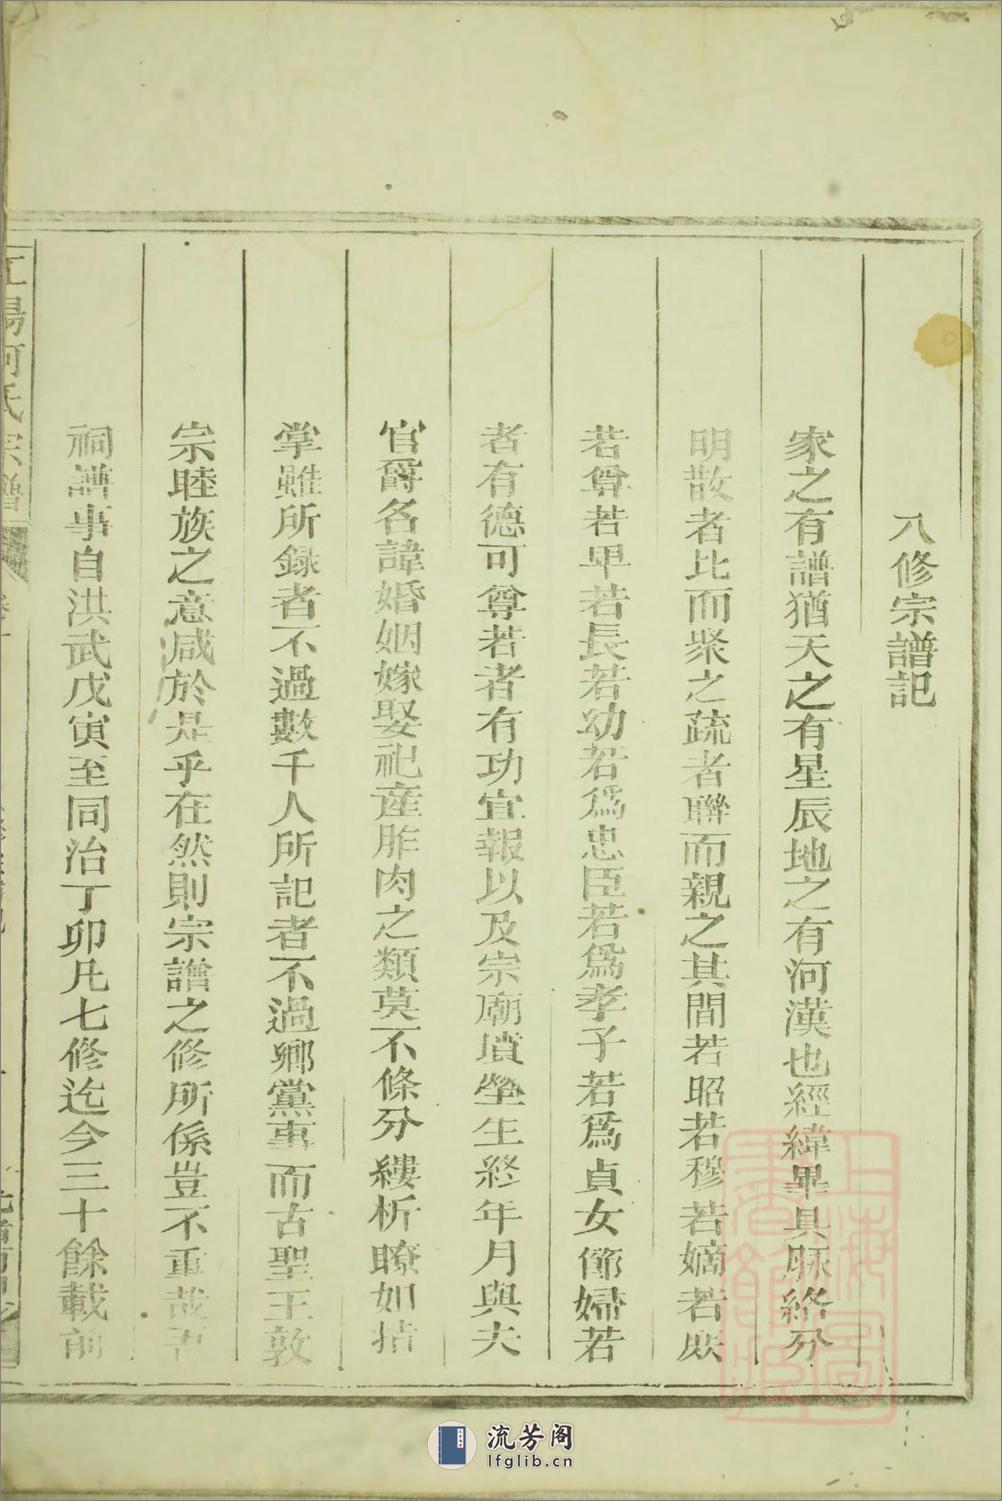 八修宗譜記
家之有譜猶天之有星辰地之有河漢也經緯畢具脉絡分
明散者比而聚之疏者聯而親之其間若昭若穆若嫡若庶
若尊若卑若長若幼若爲忠臣若爲孝子若爲貞女節婦若
者有德可尊若者有功宜報以及宗廟墳塋生終年月與夫
官爵名諱婚姻嫁娶祀產胙肉之類莫不條分縷析瞭如指
掌雖所録者不過數千人所記者不過鄉黨事而古聖王敦
宗睦族之意咸於是乎在然則宗譜之修所係豈不重哉吾
祠譜事自洪武戊寅至同治丁卯凡七修迄今三十餘載前
江陽何氏宗譜
上海圖書館藏
流芳阁
lfglib.cn